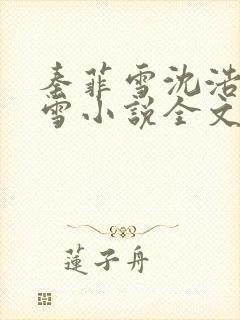 秦菲雪沈浩
雪小説全文
蓮子舟